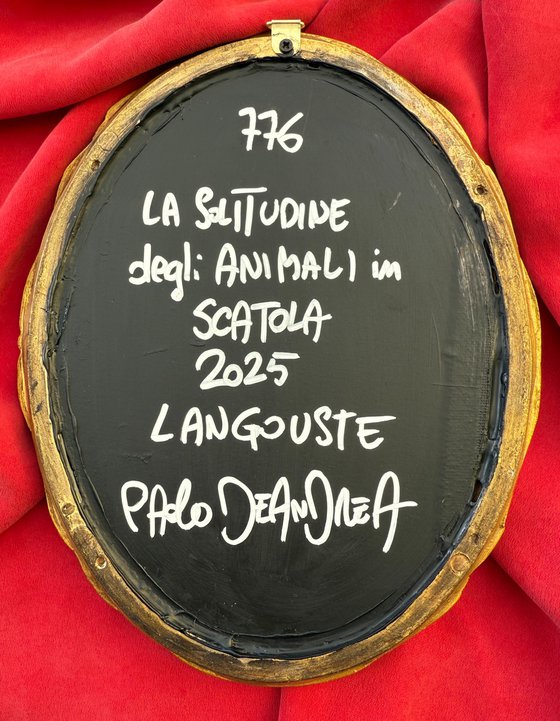 776
LA SOLITUDINE
degli ANIMALI in
SCATOLA
2025
LANGOUSTE
PAOLO DEANDREA